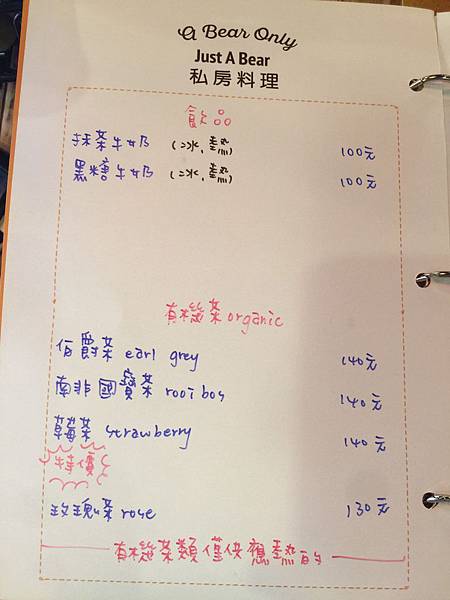 a Bear Only
Just A Bear
私房料理
飲品
抹茶牛奶 (冰,熱) 100元
黑糖牛奶 (冰,熱) 100元
有機茶 organic
伯爵茶 earl grey 140元
南非國寶茶 rooibos 140元
草莓茶 strawberry 140元
特價
玫瑰茶 rose 130元
有機茶類僅供應熱的